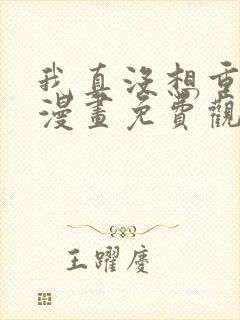 我真沒想重
漫畫免費觀
王躍慶